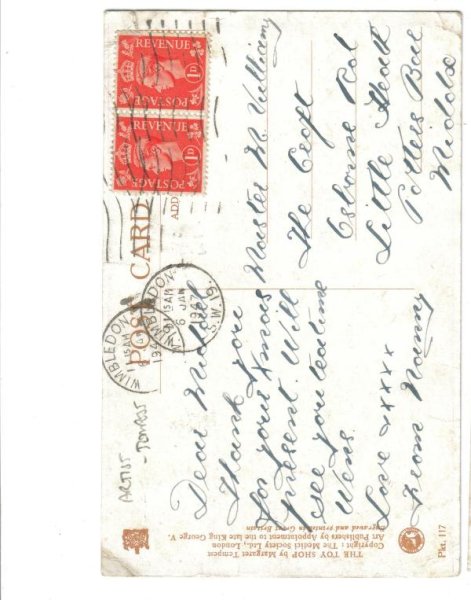 POST CARD
ADD
REVENUE
1D
POSTAGE
REVENUE
1D
POSTAGE
WIMBLEDON
11 15AM
194
WIMBLEDON
S.W.19
15AM
6 JAN
1947
Dear Michael
Thank you
for your Xmas
present. Will
see you teatime
Wens.
Love xxxx
From Nanny
Master M Vulliamy
The Croft
Osborne Rd
Little Heath
Potters Bar
Middx
ARTIST
- TEMPEST
THE TOY SHOP by Margaret Tempest
Copyright: The Medici Society Ltd., London
Art Publishers by Appointment to the late King George V.
Engraved and printed in Great Britain
Pkt. 117